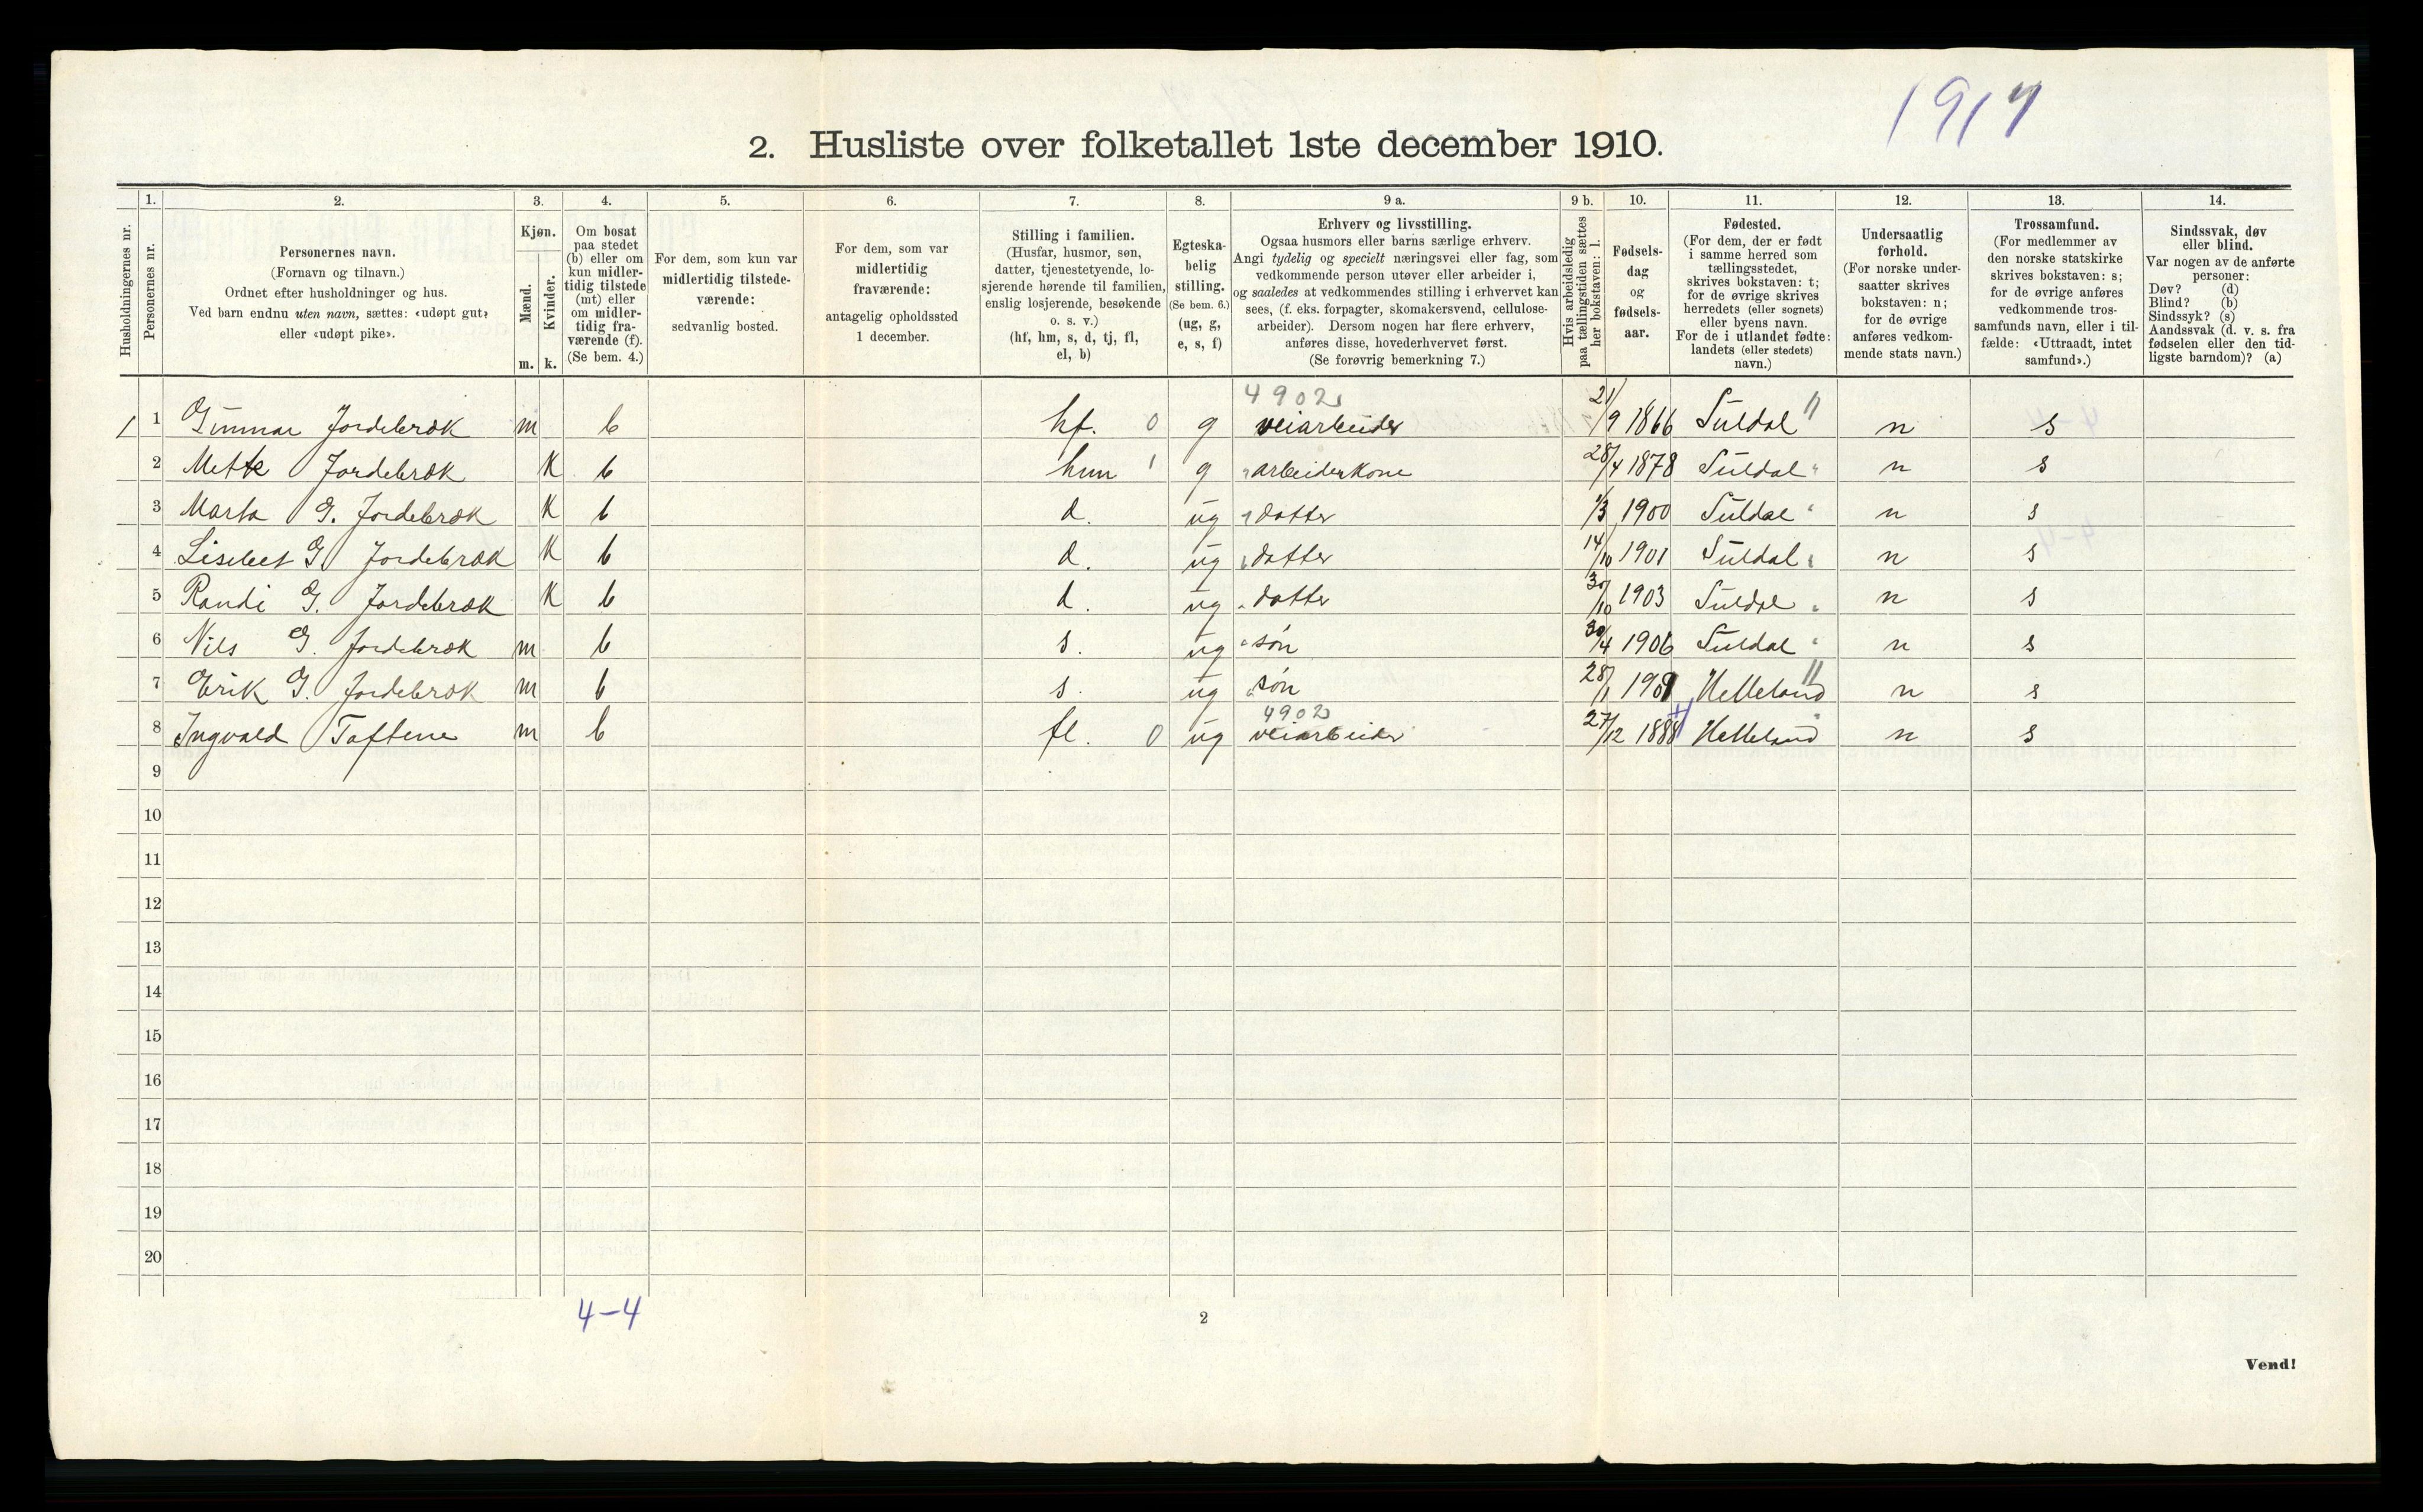 1914
2. Husliste over folketallet 1ste december 1910.
1. 2. 3. 4. 5. 6. 7. 8. 9 a. 9 b. 10. 11. 12. 13. 14.
Husholdningernes nr.
Personernes nr.
Personernes navn.
(Fornavn og tilnavn.)
Ordnet efter husholdninger og hus.
Ved barn endnu uten navn, sættes: «udøpt gut»
eller «udøpt pike».
Kjøn.
Mænd.
Kvinder.
m. k.
Om bosat
paa stedet
(b) eller om
kun midler-
tidig tilstede
(mt) eller
om midler-
tidig fra-
værende (f).
(Se bem. 4.)
For dem, som kun var
midlertidig tilstede-
værende:
sedvanlig bosted.
For dem, som var
midlertidig
fraværende:
antagelig opholdssted
1 december.
Stilling i familien.
(Husfar, husmor, søn,
datter, tjenestetyende, lo-
sjerende hørende til familien,
enslig losjerende, besøkende
o. s. v.)
(hf, hm, s, d, tj, fl,
el, b)
Egteska-
belig
stilling.
(Se bem. 6.)
(ug, g,
e, s, f)
Erhverv og livsstilling.
Ogsaa husmors eller barns særlige erhverv.
Angi tydelig og specielt næringsvei eller fag, som
vedkommende person utøver eller arbeider i,
og saaledes at vedkommendes stilling i erhvervet kan
sees, (f. eks. forpagter, skomakersvend, cellulose-
arbeider). Dersom nogen har flere erhverv,
anføres disse, hovederhvervet først.
(Se forøvrig bemerkning 7.)
Hvis arbeidsledig
paa tællingstiden sættes
her bokstaven: l.
Fødsels-
dag
og
fødsels-
aar.
Fødested.
(For dem, der er født
i samme herred som
tællingsstedet,
skrives bokstaven: t;
for de øvrige skrives
herredets (eller sognets)
eller byens navn.
For de i utlandet fødte:
landets (eller stedets)
navn.)
Undersaatlig
forhold.
(For norske under-
saatter skrives
bokstaven: n;
for de øvrige
anføres vedkom-
mende stats navn.)
Trossamfund.
(For medlemmer av
den norske statskirke
skrives bokstaven: s;
for de øvrige anføres
vedkommende tros-
samfunds navn, eller i til-
fælde: «Uttraadt, intet
samfund».)
Sindssvak, døv
eller blind.
Var nogen av de anførte
personer:
Døv? (d)
Blind? (b)
Sindssyk? (s)
Aandssvak (d. v. s. fra
fødselen eller den tid-
ligste barndom)? (a)
4902
1 1 Gunnar Jordebrek m b hf. 0 g veiarbeider 21/9 1866 Suldal " n s
2 Mette Jordebrek K b hum 1 g " arbeiderkone 28/4 1878 Suldal " n s
3 Marta G. Jordebrek K b d. ug " datter 1/3 1900 Suldal " n s
4 Lisebet G Jordebrek K b d. ug " datter 14/10 1901 Suldal " n s
5 Randi G. Jordebrek K b d. ug " datter 30/10 1903 Suldal " n s
6 Nils G. Jordebrek m b s. ug " søn 30/4 1906 Suldal " n s
7 Erik G. Jordebrek m b s. ug " søn 28/1 1909 Helleland " n s
4902
8 Ingvald Toftene m b fl. 0 ug veiarbeider 27/12 1888 Helleland " n s
9
10
11
12
13
14
15
16
17
18
19
20
4-4
2
Vend!